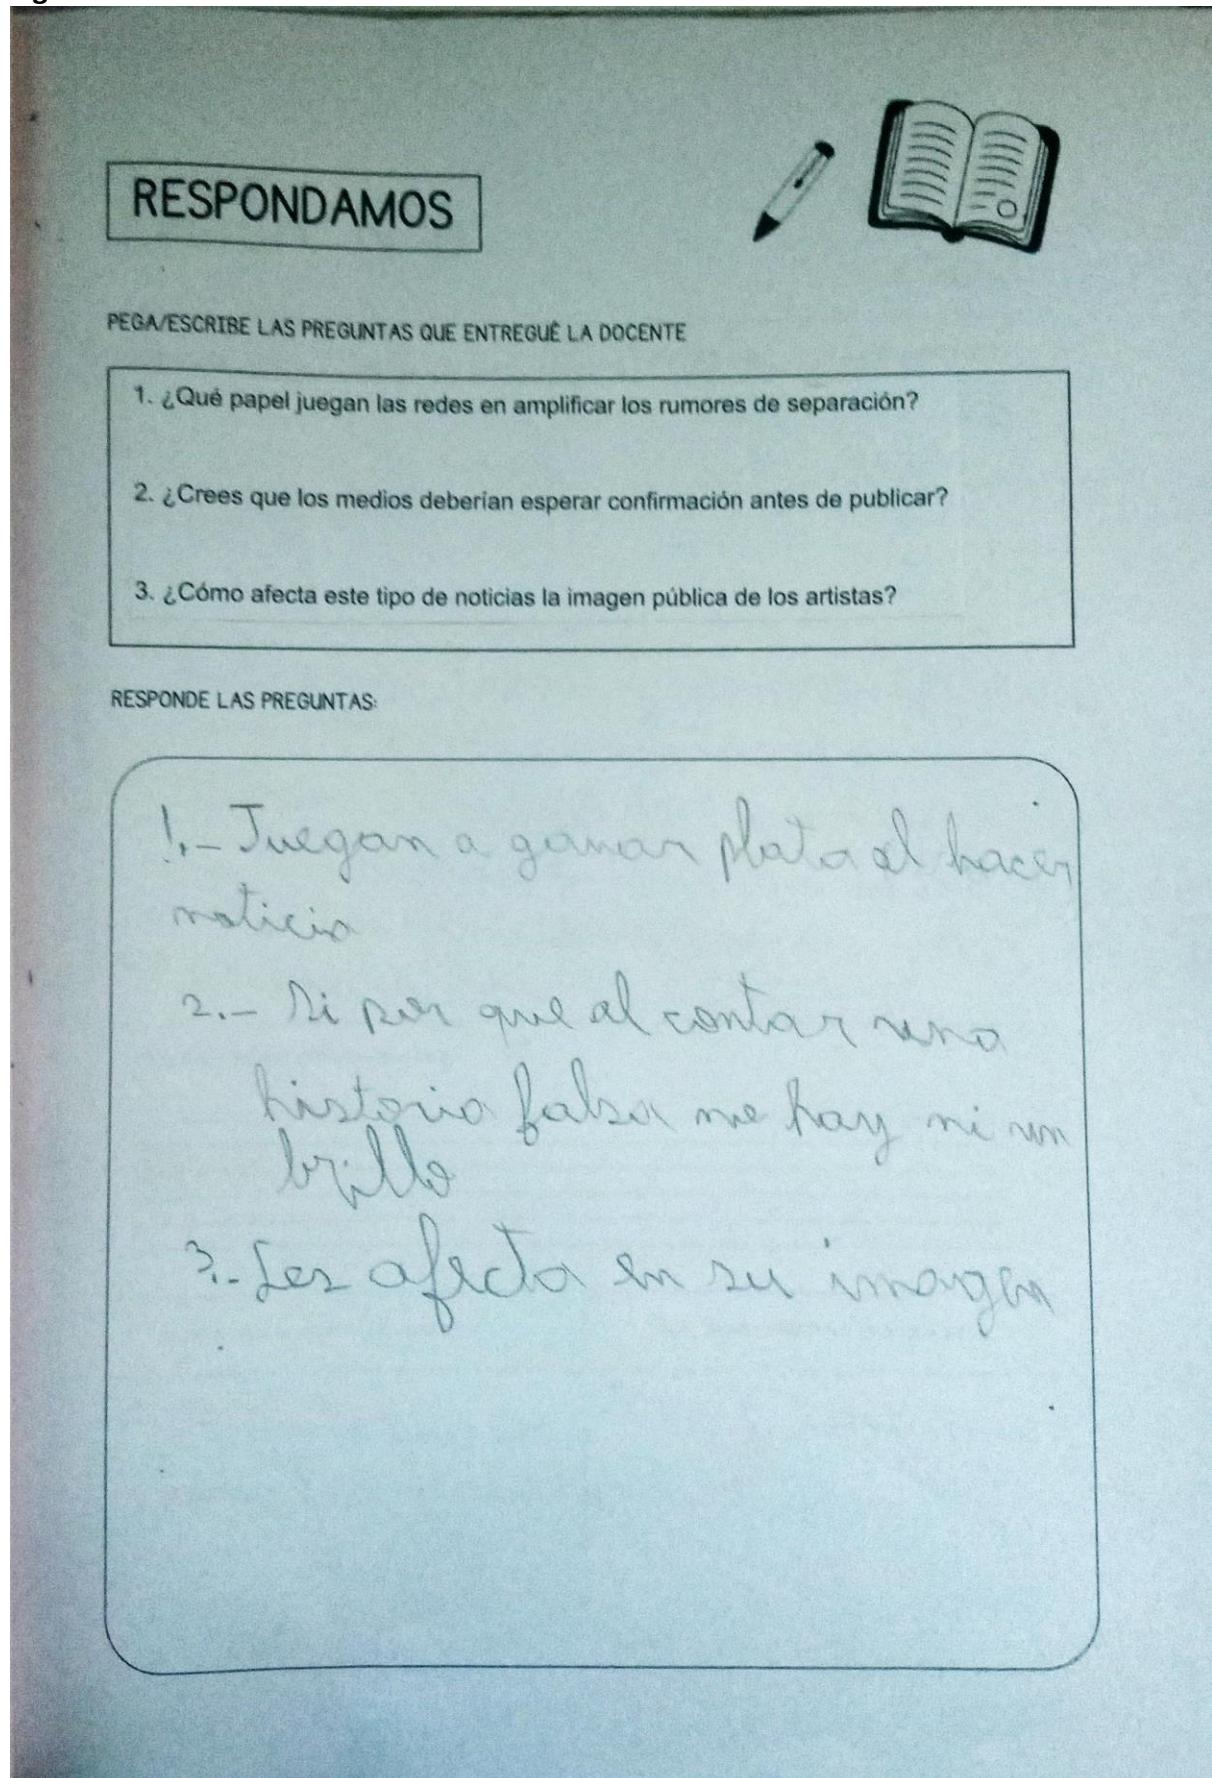 RESPONDAMOS
PEGA/ESCRIBE LAS PREGUNTAS QUE ENTREGUÉ LA DOCENTE
1. ¿Qué papel juegan las redes en amplificar los rumores de separación?
2. ¿Crees que los medios deberían esperar confirmación antes de publicar?
3. ¿Cómo afecta este tipo de noticias la imagen pública de los artistas?
RESPONDE LAS PREGUNTAS:
1.- Juegan a ganar plata al hacer
noticia
2.- Si por que al contar una
historia falsa no hay ni un
brillo
3.- Les afecta en su imagen